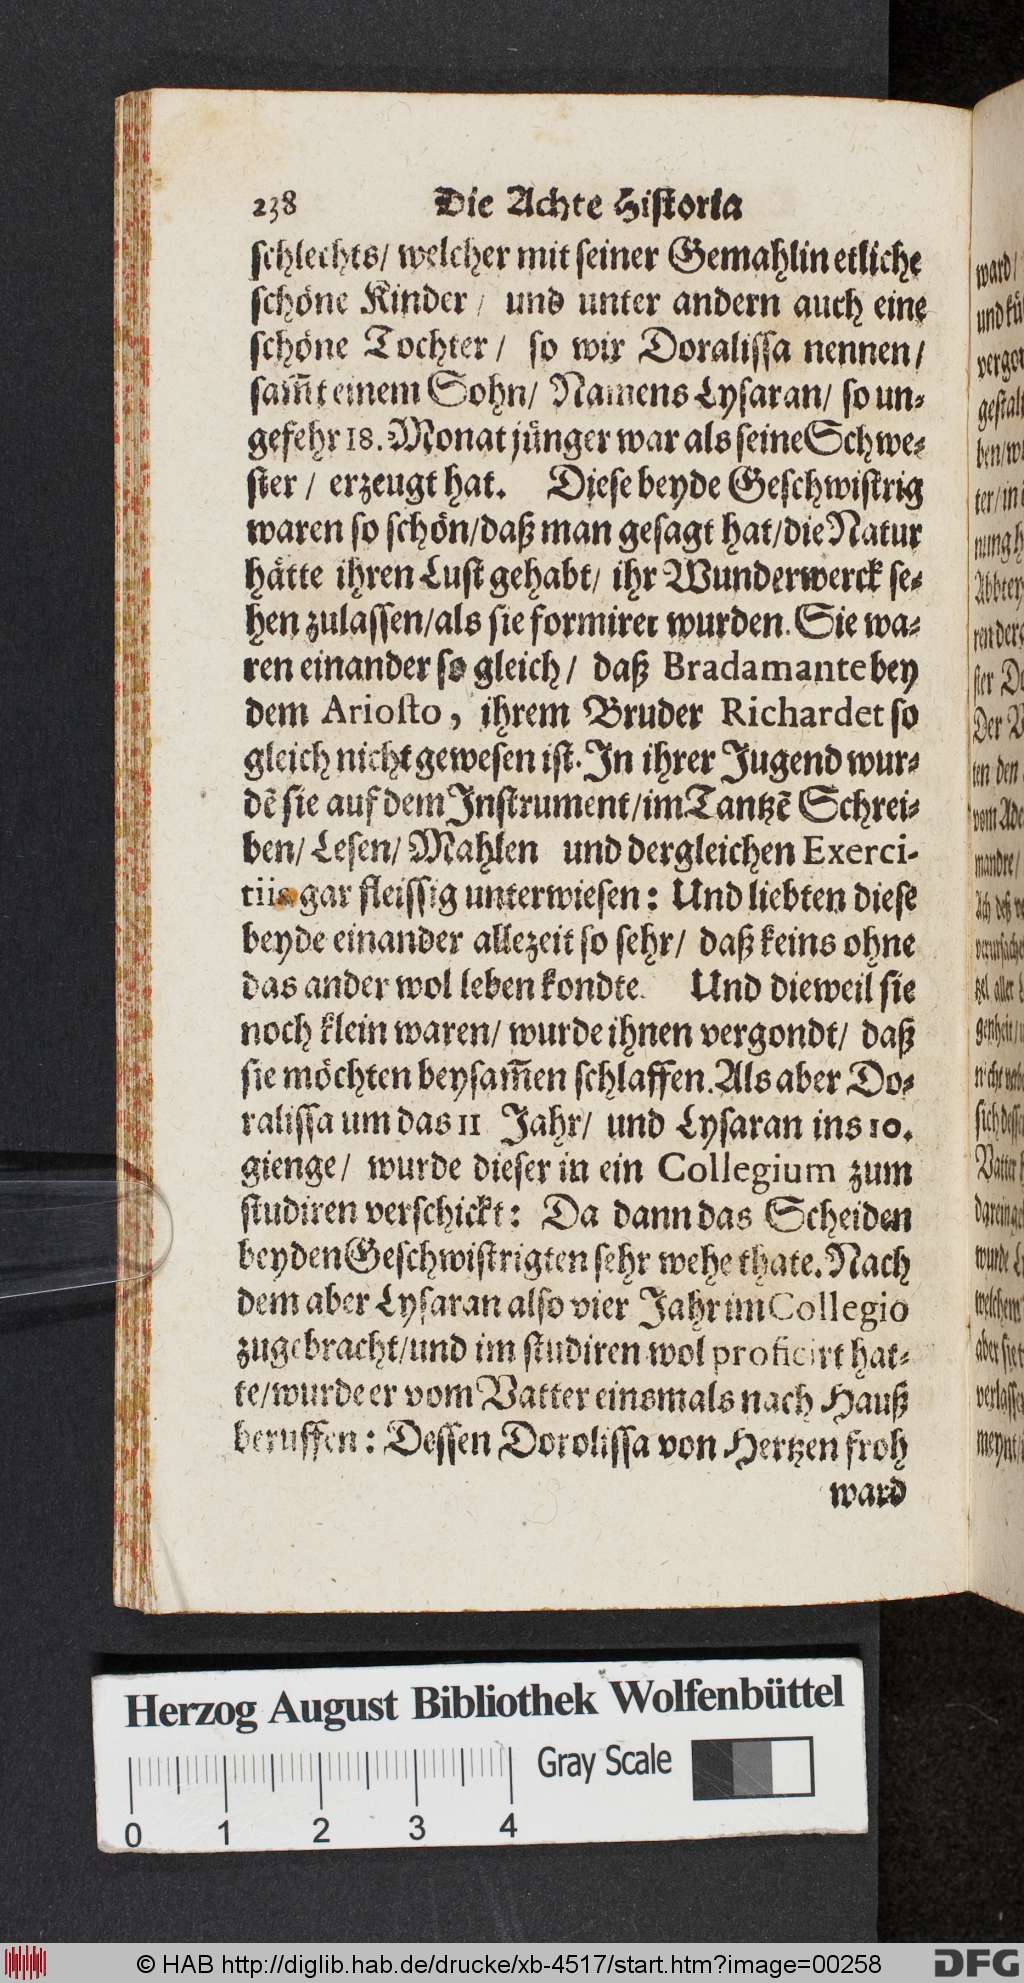 238 Die Achte Historia
schlechts/ welcher mit seiner Gemahlin etliche
schöne Kinder/ und unter andern auch eine
schöne Tochter/ so wir Doralissa nennen/
sam̃t einem Sohn/ Namens Lysaran/ so un-
gefehr 18. Monat jünger war als seine Schwe-
ster/ erzeugt hat. Diese beyde Geschwistrig
waren so schön/ daß man gesagt hat/ die Natur
hätte ihren Lust gehabt/ ihr Wunderwerck se-
hen zulassen/ als sie formiret wurden. Sie wa-
ren einander so gleich/ daß Bradamante bey
dem Ariosto, ihrem Bruder Richardet so
gleich nicht gewesen ist. In ihrer Jugend wur-
dẽ sie auf dem Instrument/ im Tantzẽ Schrei-
ben/ Lesen/ Mahlen und dergleichen Exerci-
tiis gar fleissig unterwiesen: Und liebten diese
beyde einander allezeit so sehr/ daß keins ohne
das ander wol leben kondte. Und dieweil sie
noch klein waren/ wurde ihnen vergondt/ daß
sie möchten beysam̃en schlaffen. Als aber Do-
ralissa um das 11 Jahr/ und Lysaran ins 10.
gienge/ wurde dieser in ein Collegium zum
studiren verschickt: Da dann das Scheiden
beyden Geschwistrigten sehr wehe thate. Nach
dem aber Lysaran also vier Jahr im Collegio
zugebracht/ und im studiren wol proficirt hat-
te/ wurde er vom Vatter einsmals nach Hauß
beruffen: Dessen Dorolissa von Hertzen froh
ward
ward/
ben/
ter/ in
Abbtey
ster
Der
ten den
mandre/
Vatter
wurde
welchem
Herzog August Bibliothek Wolfenbüttel
Gray Scale
0 1 2 3 4
© HAB http://diglib.hab.de/drucke/xb-4517/start.htm?image=00258
DFG